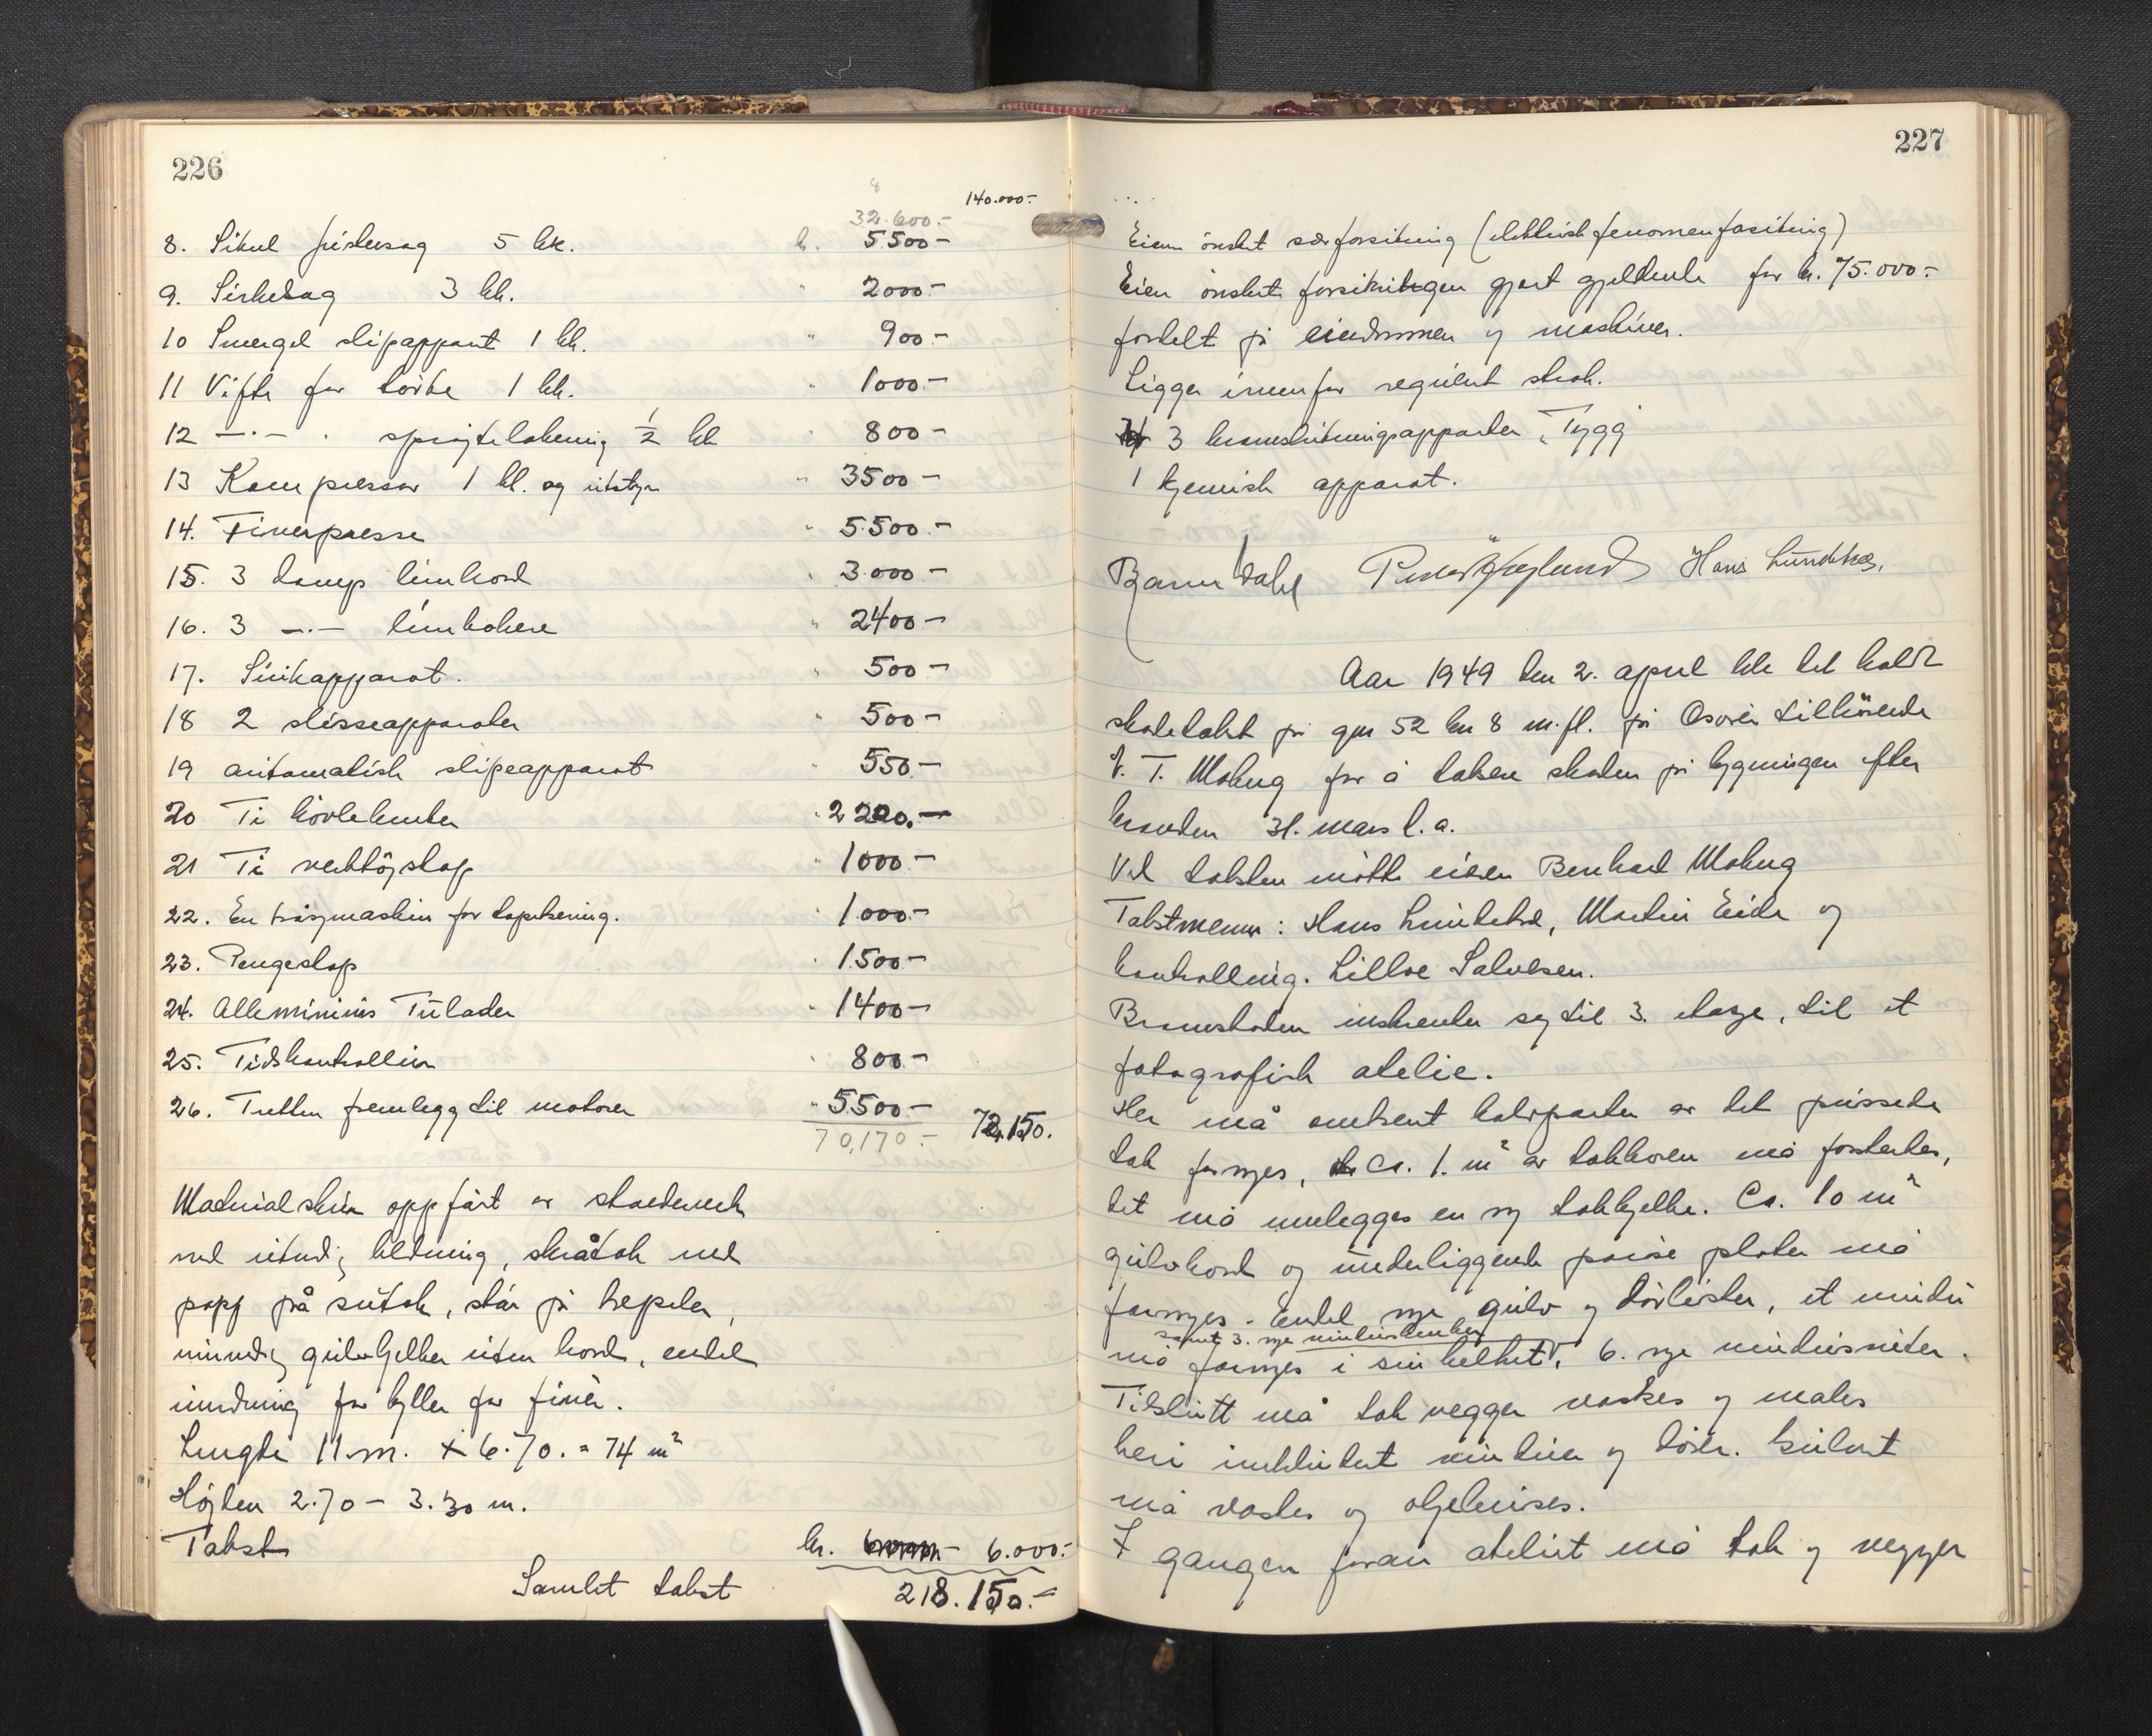 226
140.000.-
32.600.-
8. Sikul pendelsag 5 hk. kr. 5500-
9. Sirkelsag 3 hk. " 2000.-
10 Smergel slipapparat 1 hk. " 900.-
11 Vifte for tørke 1 hk. " 1000.-
12 -.- . sprøjtelakering ½ hk " 800-
13 Kompressor 1 hk. og utstyr " 3500-
14. Finerpresse " 5.500.-
15. 3 damp limbord " 3.000-
16. 3 -.- limkokere " 2400-
17. Sinkapparat. " 500-
18 2 slisseapparater " 500-
19 automatisk slipeapparat " 550.-
20 Ti høvlebenker " 2200.-
21 Ti verktøjskap " 1000-
22. En tråsymaskin for tapetsering. " 1.000.-
23. Pengeskap " 1.500-
24. Alleminiums Tinlader " 1400-
25. Tidskontrollur " 800-
26. Tretten fremlegg til motorer " 5.500-
70,170.- 72,150.
Materialskur oppført av staaende
med utvendig kledning, skråtak med
papp på sutak, står på trepeler,
innvendig gulvbjelker uten bord, endel
innredning for hyller for finèr.
Lengde 11.m. x 6.70. = 74 m²
Højden 2.70 - 3.30 m.
Takst kr. 6.000.-
Samlet takst 218.150.-
227
Eieren ønsket særforsikring (elektrisk fenomenforsikring)
Eieren ønsket forsikringen gjort gjeldende for kr. 75.000.-
fordelt på eiendommen og maskiner.
Ligger innenfor regulert strøk.
3 brannslukningsapparater "Trygg"
1 kjemisk apparat.
Bjarne Dahl Hans Lundetræ,
Aar 1949 den 2. april ble det holdt
skadetakst på gnr 52 bnr 8 m.fl. på Osøren tilhørende
T. Moberg for å taksere skaden på bygningen efter
branden 31. mars l.a.
Ved taksten møtte eieren Bernhard Moberg
Takstmenn: Hans Lundetræ, Martin Eide og
kontrolling. Lilloe Salvesen.
Brannskaden innskrenker seg til 3. etasje, til et
fotografisk atelie.
Her må omtrent halvparten av det pussede
tak fornyes, ca. 1. m² av takkoven må forsterkes,
det må innlegges en ny takbjelke. Ca. 10 m²
gulvbord og underliggende panse plater må
fornyes. Endel nye gulv og dørlister, et vindu
samt 3. nye vinduskarmer
må fornyes i sin helhet, 6. nye vindusruter.
Tilslutt må tak vegger vaskes og males
heri innkludert vinduer og dører. Gulvet
må vaskes og oljebeises.
I gangen foran atelièt må tak og vegger